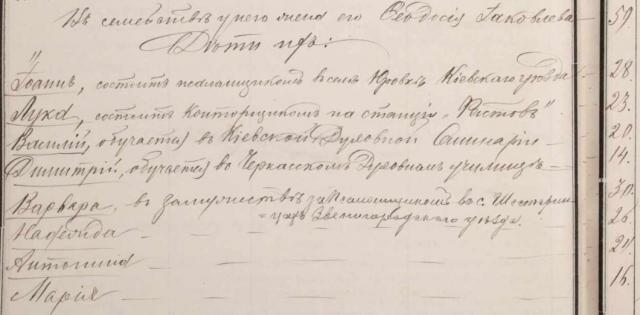 Въ семействѣ у него жена его Ѳеодосія Іаковлева 59.
Дѣти ихъ:
Іоаннъ, состоитъ псаломщикомъ въ селѣ Юровкѣ Кіевскаго уѣзда 28.
Лука, состоитъ конторщикомъ на станціи „Ростовъ" 23.
Василій, обучается въ Кіевской Духовной Семинаріи 20.
Димитрій, обучается въ Черкасскомъ Духовномъ училищѣ 14.
Варвара, въ замужествѣ за псаломщикомъ в с. Шестерин- 30.
цахъ Звенигородскаго уѣзда.
Надежда 26.
Антонина
Марія 16.